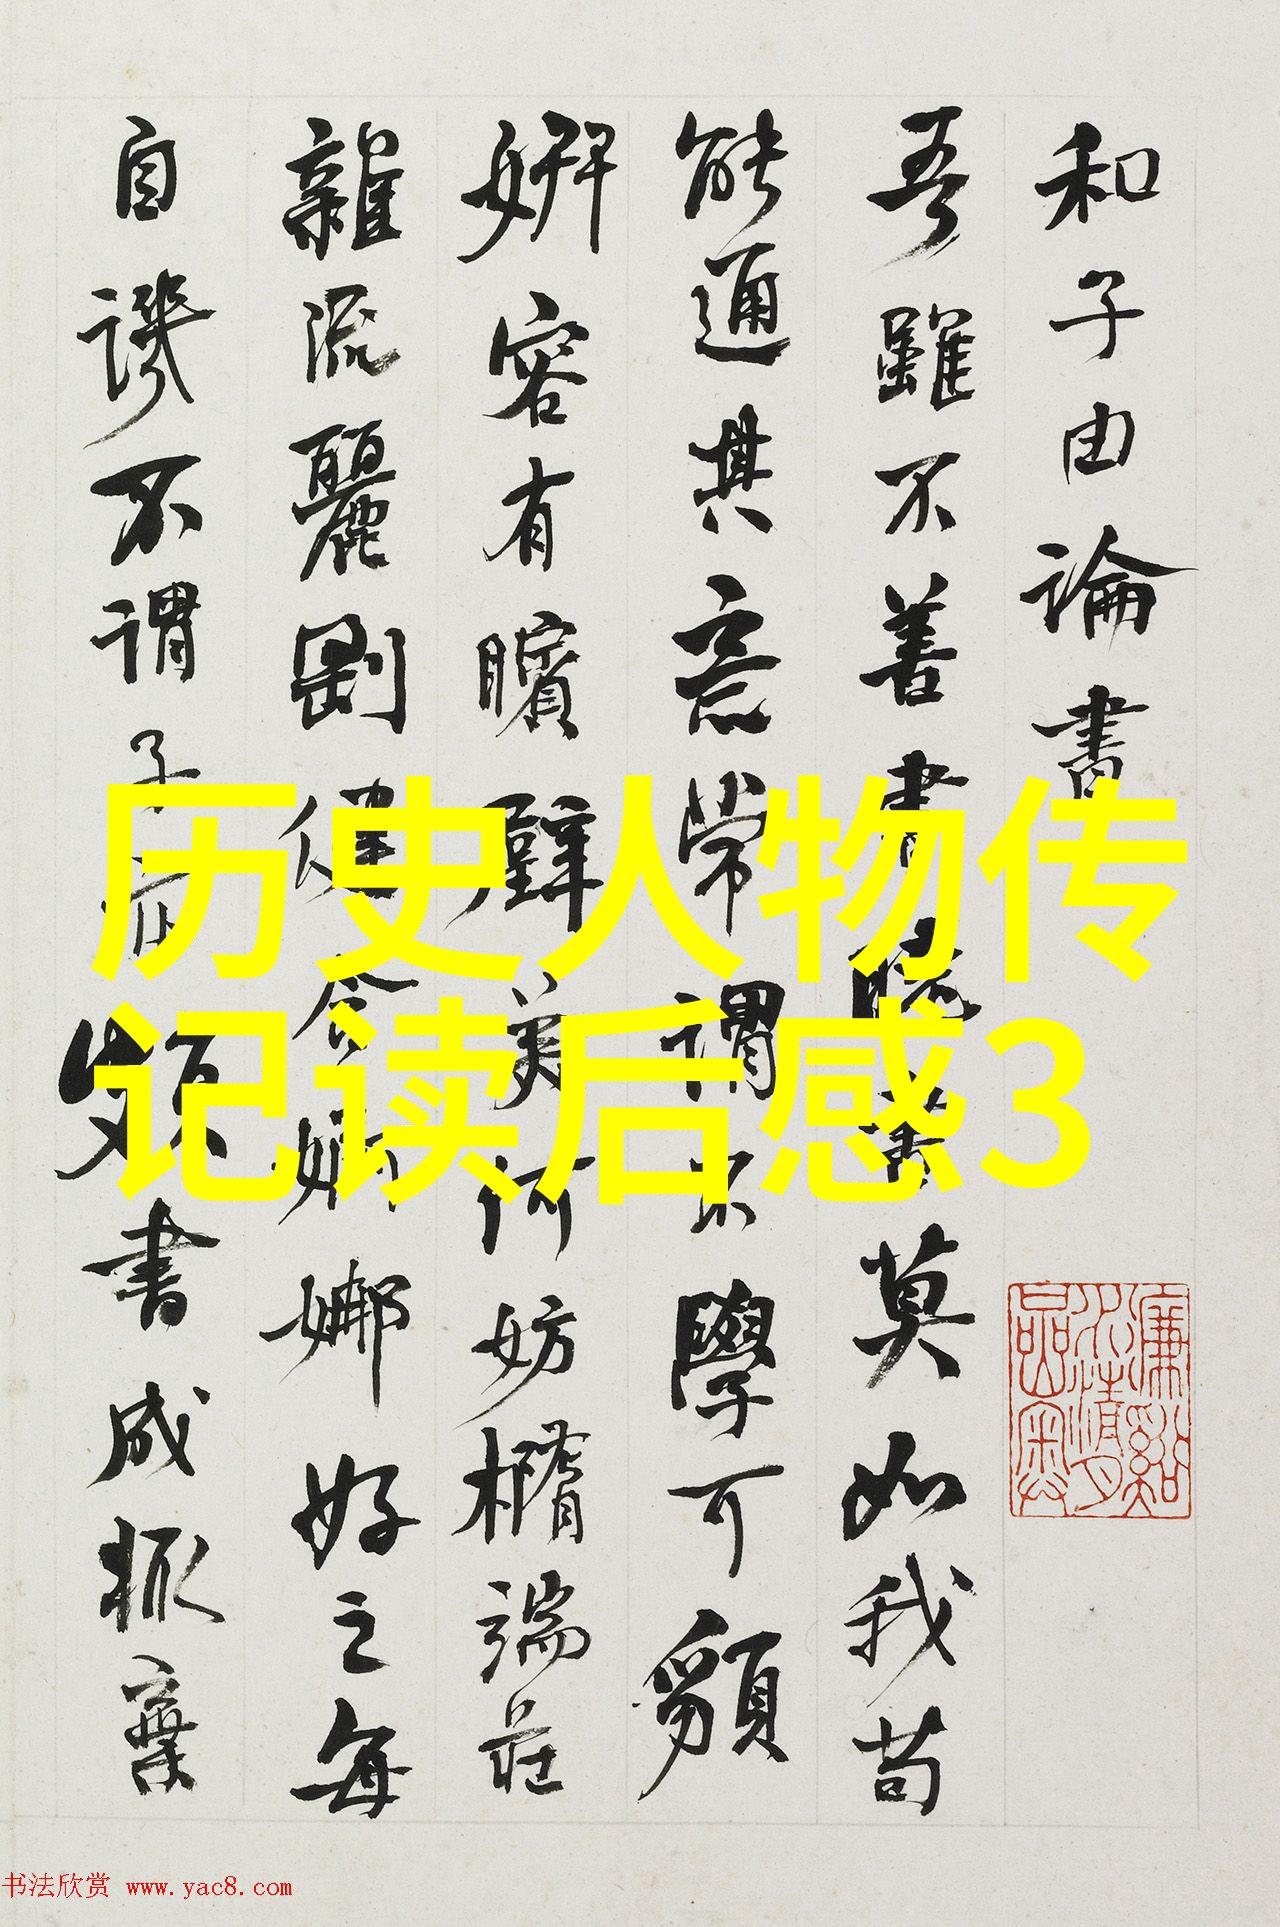 和子由論書
吾雖不善書曉書莫如我苟
能通其意常謂不學可貌
妍容有矉璧美何妨橢端莊
雜流麗剛健含婀娜好之每
自譏不謂子亦頗書成輒棄
历史人物传
记读后感3
书法欣赏 www.yac8.com